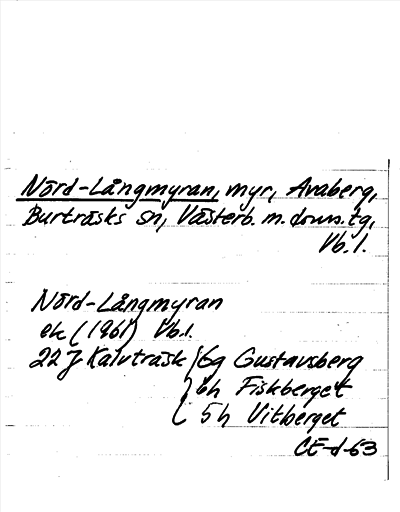 Nörd-Långmyran, myr, Avaberg,
Burträsks sn, Västerb. m. doms.tg,
Vb.l.
Nörd-Långmyran
ek (1961) Vb.l.
22 J Kalvträsk 6g Gustavsberg
6h Fiskberget
5h Vitberget
CE-d-63